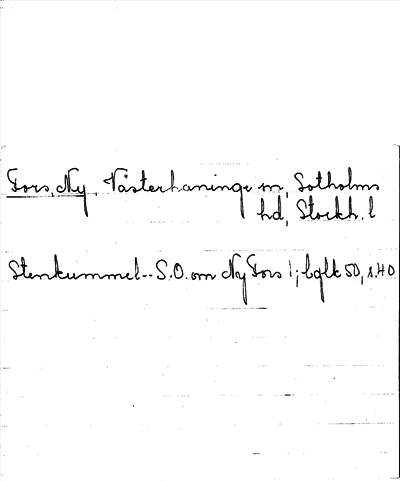 Fors, Ny, Västerhaninge sn, Sotholms
hd, Stockh. l
Stenkummel-- S.O. om Ny Fors l; bglt 50, s. 40